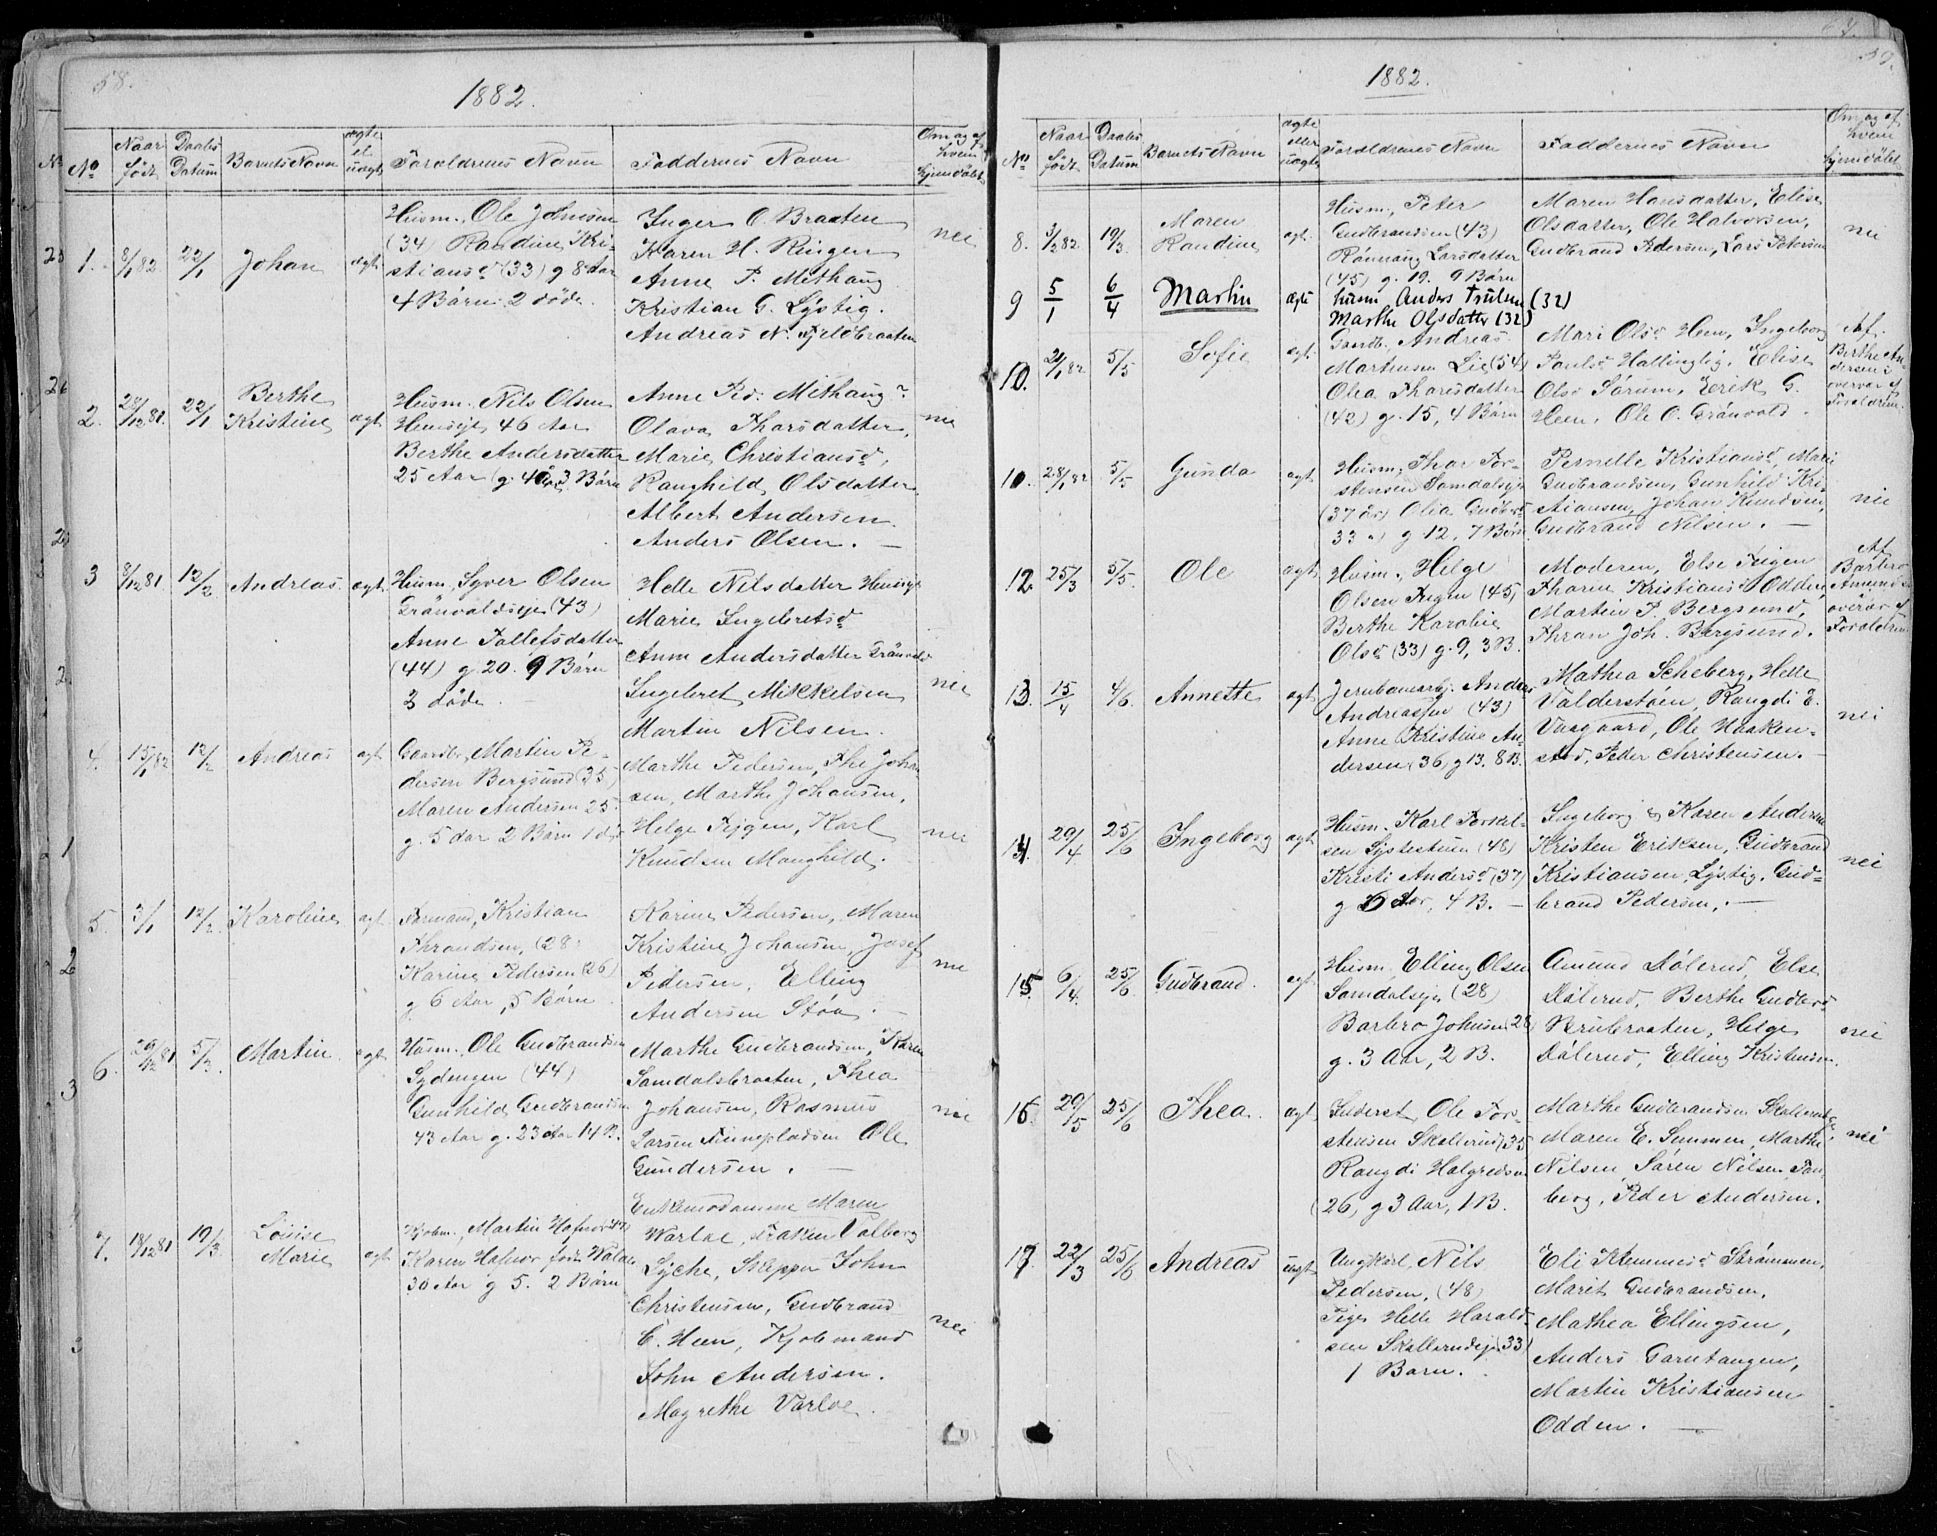 58.
1882.
No
Naar født
Daabs Datum
Barnets Navn
ægte el uægte
Forældrenes Navn
Faddernes Navn
Om og af hvem hjemdøbt
1.
8/1 82
22/1
Johan
ægt
Husm. Ole Johnsen
(34) Randine Kri-
stiansd (33) g 8 Aar
4 Børn 2 døde.
Inger O Braaten
Karen H. Ringen
Anne P. Mithaug
Kristian G. Lystig.
Andreas N. Fjeldbraaten
nei
2.
28/12 81.
22/1
Berthe
Kristine
ægt
Husm. Nils Olsen
Henseje 46 Aar
Berthe Andersdatter
25 Aar (g. 4 3 Børn
Anne Ped. Mithaug
Olava Thorsdatter,
Marie Christiansd,
Ranghild Olsdatter
Albert Andersen.
Anders Olsen. —
nei
3
8/12 81
12/2
Andreas
ægt.
Husm. Syver Olsen
Grønvoldseje (43)
Anne Pallesdatter
(44) g. 20. 9 Børn
3 døde
Helle Nilsdatter Henseje
Marie Ingebretsd
Anne Andersdatter Grønvold
Ingebret Mikkelsen
Martin Nilsen.
nei
4.
15/1 82
12/2
Andreas
ægt
Gaardbr. Martin Pe-
dersen Bergsund (35)
Maren Andersen 25.
g. 5 Aar 2 Børn 1 død
Marthe Pedersen, Thea Johan
sen, Marthe Johansen,
Helge Fejgen, Karl
Knudsen Manghild.
nei
5.
3/1
12/2
Karoline
ægt
Formand, Kristian
Thrandsen, (28)
Karine Pedersen (26)
g 6 Aar, 5 Børn
Karine Pedersen, Maren
Kristine Johansen, Josef
Pedersen, Elling
Andersen Støa. —
nei
6.
29/12 81
5/3
Martin
ægt
Husm. Ole Gudbrandsen
Sydengen (44)
Gunhild Gudbrandsen
43 Aar g. 23 Aar 14 B.
Marthe Gudbrandsen, Karen
Samdalsbraaten, Thea
Johansen, Rasmus
Larsen Finnepladsen Ole
Gundersen. —
nei
7.
18/12 81
19/3
Lovise
Marie
ægt
Kjøbm. Martin Hafnor
Karen Hafnor født Warloe
30 Aar g 5. 2 Børn
Enkemadamme Maren
Warloe, Frøken Valborg
Lyche, Skipper John
Christensen, Gudbrand
C. Heen, Kjøbmand
John Andersen.
Magrethe Varloe.
nei
59.
1882.
No
Naar født
Daabs Datum
Barnets Navn
ægte eller uægte
Forældrenes Navn
Faddernes Navn
Om og af hvem hjemdøbt
8.
3/2 82
19/3
Maren
Randine
ægt.
Husm. Peter
Gudbrandsen (43)
Rønnaug Larsdatter
(45) g. 19. 9 Børn
Maren Hansdatter, Elise
Olsdatter, Ole Halvorsen,
Gudbrand Pedersen, Lars Petersen
nei
9
5/1
6/4
Martin
ægte
husm. Anders Trulsen (32)
Marthe Olsdatter (32)
10.
21/1 82
5/5
Sofie
ægt.
Gaardb. Andreas
Martinsen Lie (54)
Olea Thorsdatter
(42) g. 15, 4 Børn
Mari Olsd Heen, Ingeborg
Paulsd Hallinglig, Elise
Olsd Sørum, Erik G.
Heen, Ole O. Grønvold.
Af.
Berthe An-
dersen i
overvær af
Forældrene
10.
28/1 82
5/5
Gunda
ægt.
Husm. Thor Tor-
stensen Samdalseje
(37 år) Olia Gudbrd
33 g 12, 7 Børn
Pernelle Kristiansd, Mari
Gudbrandsen, Gunhild Kri-
stiansen, Johan Knudsen,
Gudbrand Nilsen. —
nei
12.
25/3
5/5.
Ole
ægt.
Husm. Helge
Olsen Fejgen (45)
Berthe Karoline
Olsd (33) g. 9, 3 B.
Moderen, Else Fejgen
Thorine Kristiansd Odden,
Martin P. Bergsund,
Thran Joh. Bergsund.
Af
Barbro
Amundsd
overvær af
Forældrene
13.
15/4
4/6.
Annette
ægt
Jernbanearb. Andreas
Andreassen (43)
Anne Kristine An-
dersen (36) g 13. 8 B.
Mathea Scheberg, Helle
Valderstøen, Rangdi E.
Vaagaard, Ole Haaken-
stad, Peder Christensen. —
nei
14.
29/4
25/6
Ingeborg
ægt
Husm. Karl Torkil-
sen Lystestuen (48)
Kristi Andersd (37)
g 6 Aar, 4 B. —
Ingeborg & Karen Andersen
Kristen Eriksen, Gudbrand
Kristiansen Lystig, Gud-
brand Pedersen, —
nei
15.
6/4.
25/6
Gudbrand.
ægt.
Husm. Elling Olsen
Samdalseje (28)
Barbro Johnsen 28
g. 3 Aar, 2 B.
Amund Dølerud, Else
Dølerud, Berthe Gudbrd
Brubraaten, Helge
Dølerud, Elling Kristensen.
nei
16.
29/5
25/6
Thea.
ægt.
Inderst. Ole Tor-
stensen Skollerud 35
Rangdi Halgredsen
(26) g 3 Aar, 1 B.
Marthe Gudbrandsen Skollerudeje,
Maren E. Semmen, Marthe
Nilsen, Søren Nilsen Tan-
berg, Peder Andersen.
nei
17
22/3
25/6
Andreas
uægt
Ungkarl, Nils
Pedersen, (48)
Pige Helle Harald-
sen Skollerudeje (33)
1 Barn.
Eli Klemmesd Strømmen,
Marit Gudbrandsen,
Mathea Ellingsen,
Anders Garntangen,
Martin Kristiansen
Odden. —